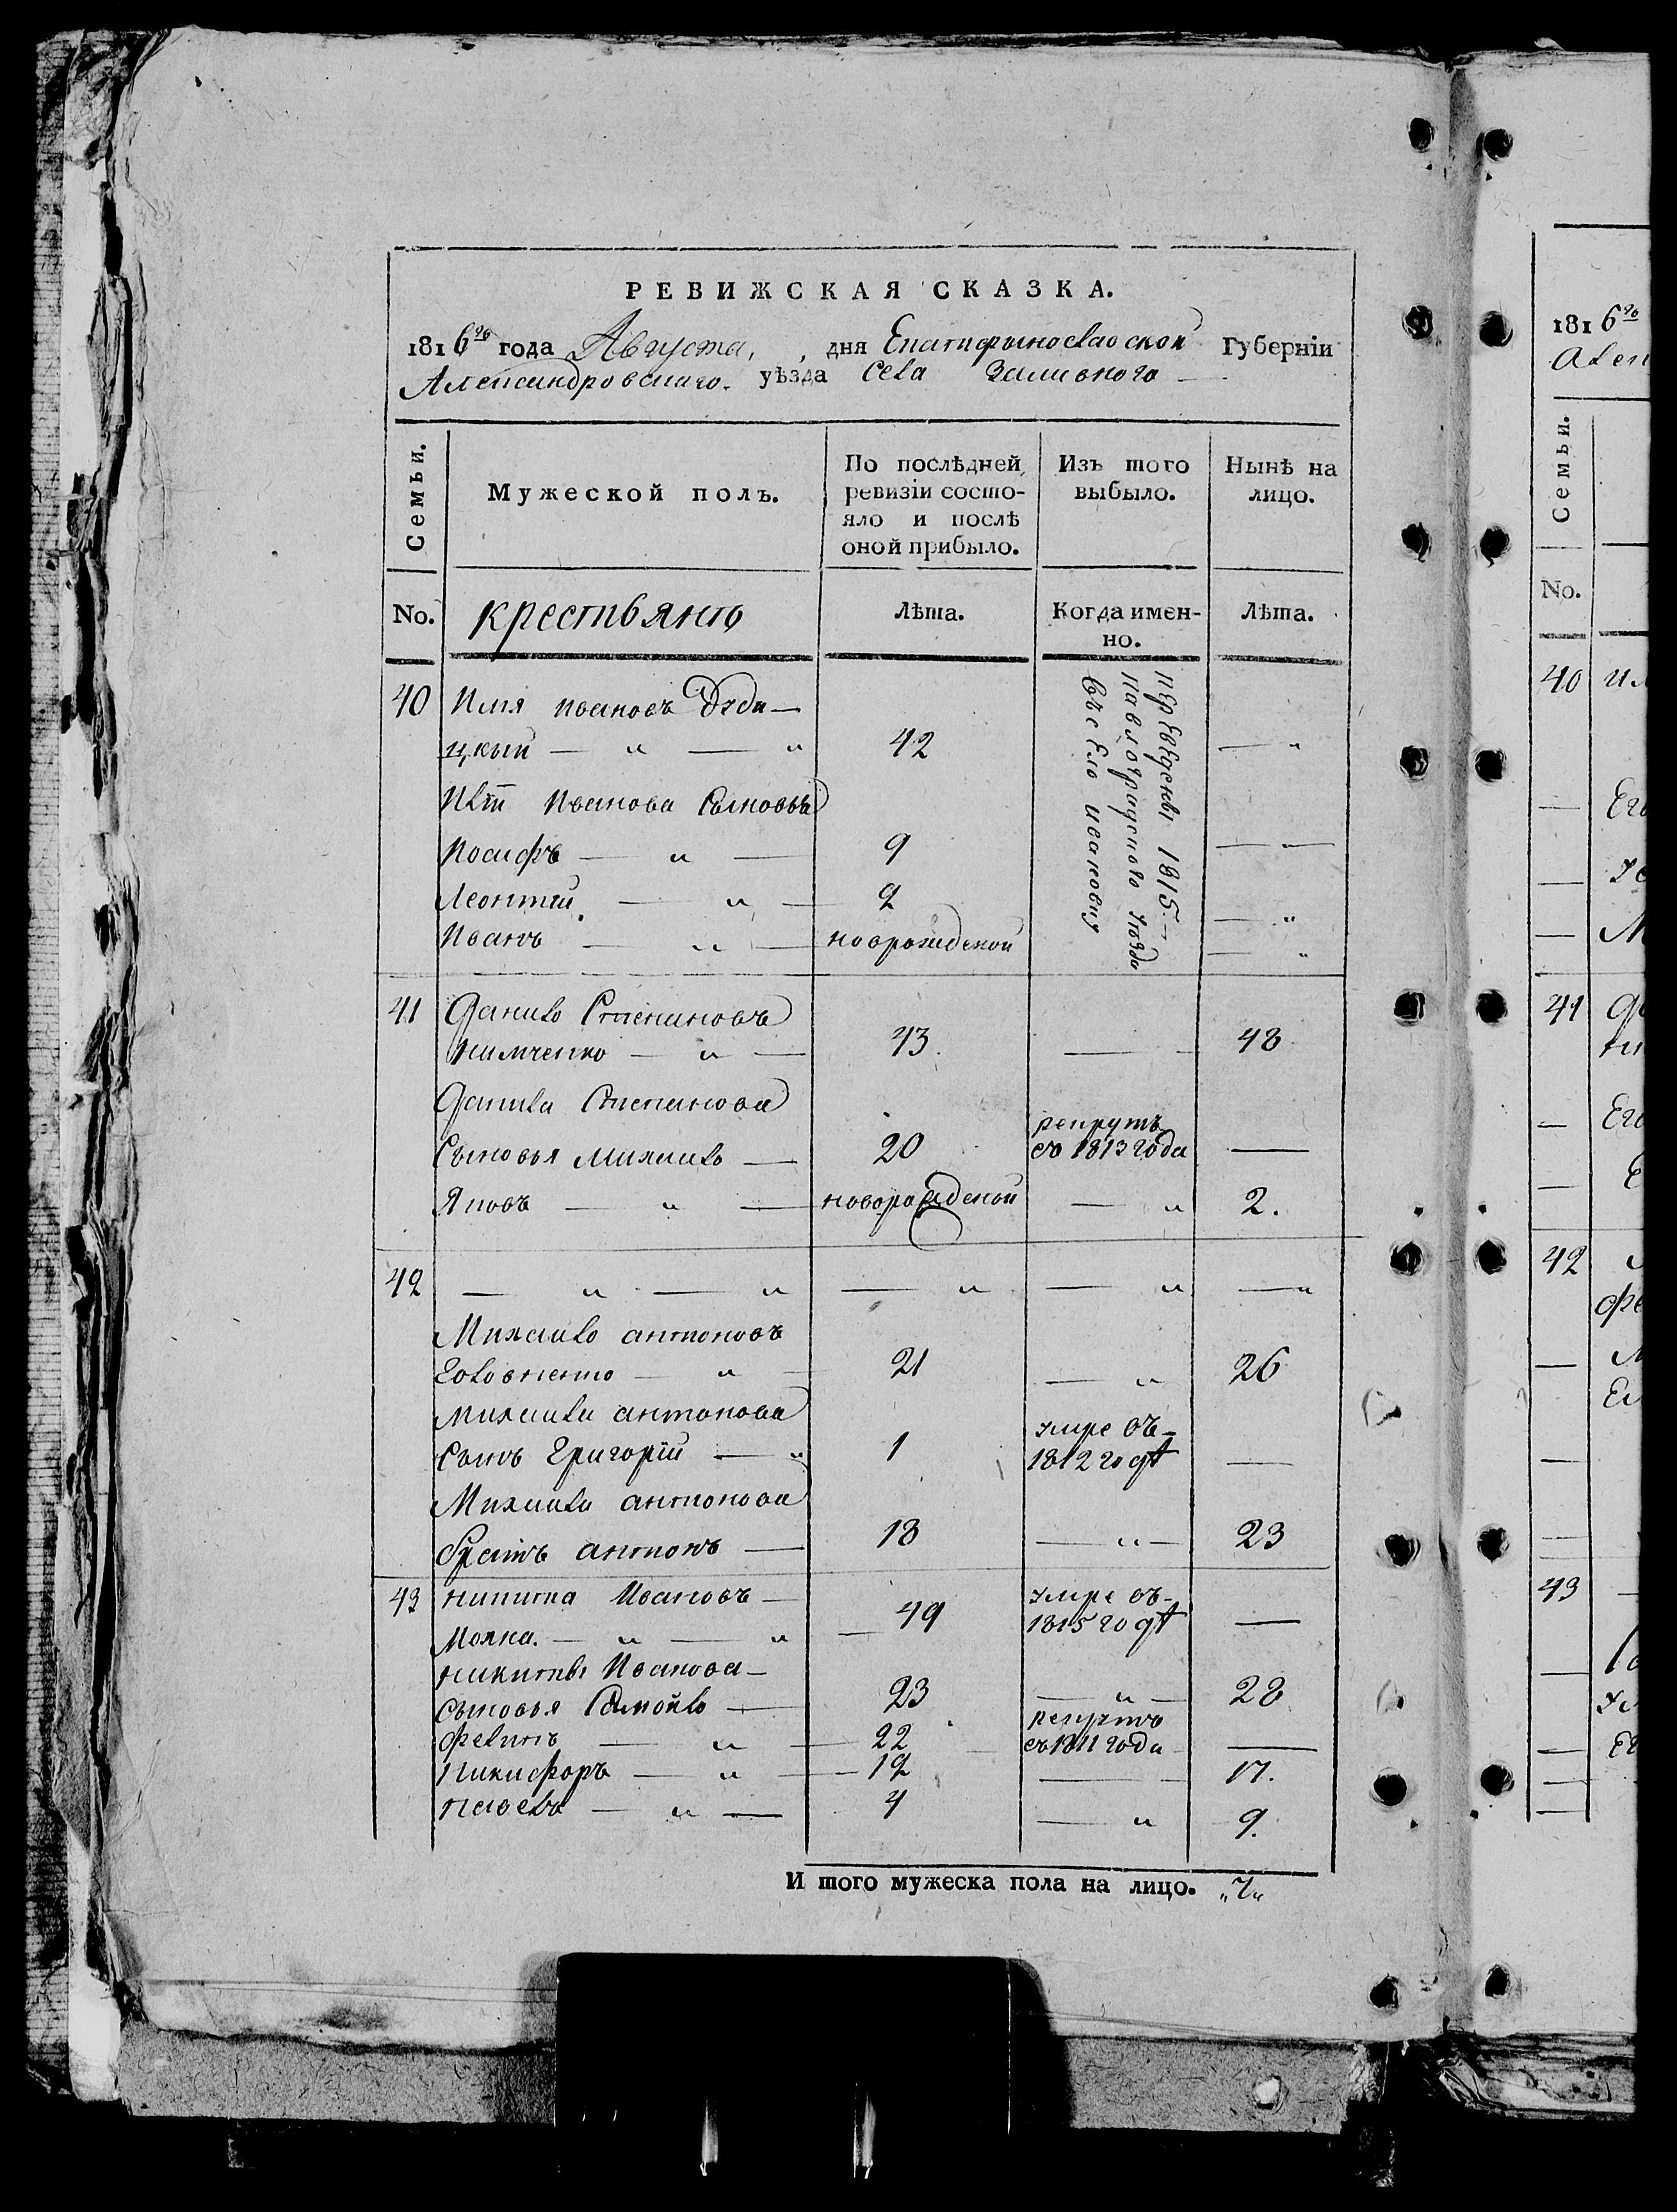 РЕВИЖСКАЯ СКАЗКА.
1816го года Августа, , дня Екатеринославской Губерніи
Александровскаго. уѣзда Села Заливного —
Семьи.
Мужеской полъ.
По послѣдней ревизіи состояло и послѣ оной прибыло.
Изъ того выбыло.
Нынѣ на лицо.
No. крестьянъ Лѣта. Когда именно. Лѣта.
40 Илія Ивановъ
цкый — „ — „ 42 — „
Иліи Иванова Сыновья
Иосифъ — „ — 9 — „ —
Леонтій — „ — 2 — „
Иванъ — „ — новорожденой — „
переведены 1815
Павлоградского уѣзда
въ село Ивановку
41 Данило Степановъ
Климченко — „ — 43. — 48
Данила Степанова
Сыновья Михайло — 20 рекрутъ съ 1813 года —
Яковъ — „ — новорожденой — „ 2.
42 — „ — „ — „ — „ — „
Михайло антоновъ
Головненко — „ — 21 — „ 26
Михайла антонова
Сынъ Григорій — „ 1 умре въ 1812 годѣ —
Михайла антонова
братъ антонъ — 18 — „ — 23
43 Никита Ивановъ —
Мокна. — „ — „ — 49 умре въ 1815 годѣ —
Никиты Иванова —
сыновья Самойло — 23 — „ — 28
Филипъ — „ — 22 рекрутъ съ 1811 года —
Никифоръ — „ — 12 — 17.
Павелъ — „ — 4 — „ 9.
И того мужеска пола на лицо. „7„
1816го
Семьи.
No.
40
Его
41
Его
42
43